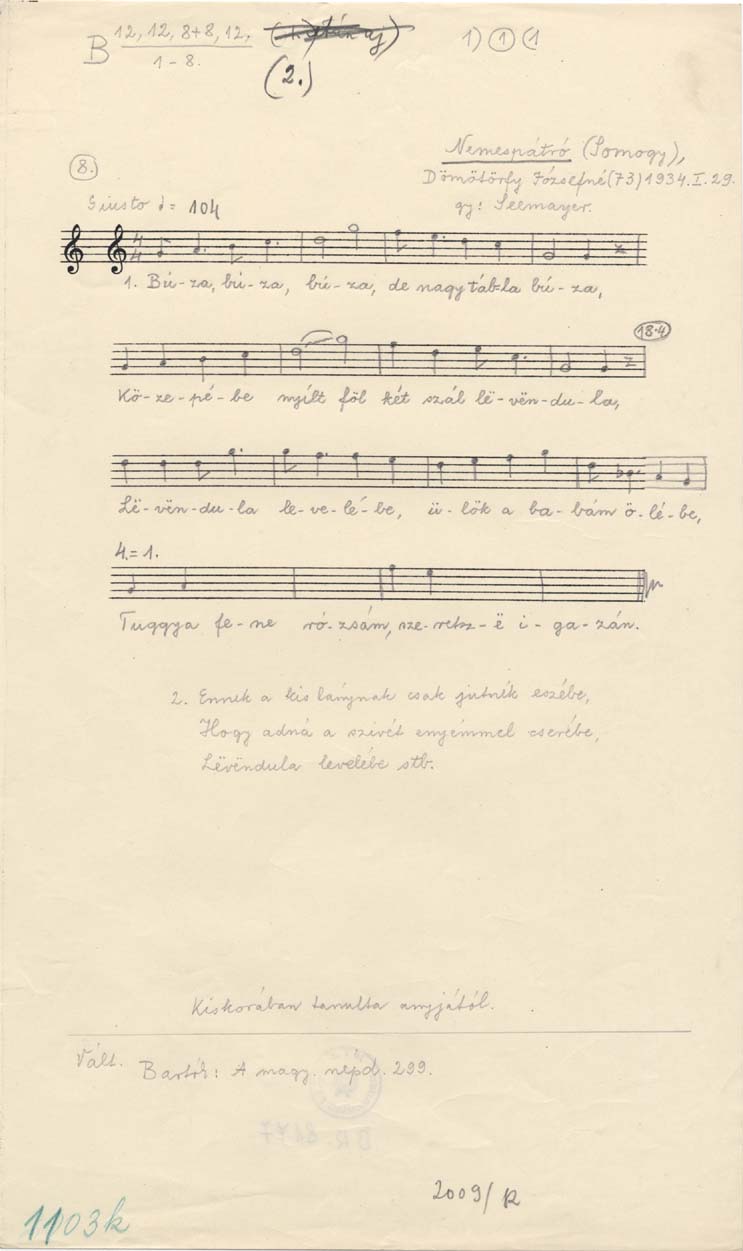 B 12, 12, 8+8, 12.
1 - 8.
(2.)
1) 1 (1
8.
Nemespátró (Somogy),
Dömötörfy Józsefné (73) 1934. I. 29.
gy: Seemayer.
Giusto = 104
4
4
1. Bú-za, bú-za, bú-za, de nagy táb-la bú-za,
18.4
Kö-ze-pé-be nyílt föl két szál lë-vën-du-la,
Lë-vën-du-la le-ve-lé-be, ü-lök a ba-bám ö-lé-be,
4. = 1.
Tuggya fe-ne ró-zsám, sze-retsz-ë i-ga-zán.
2. Ennek a kis lánynak csak jutnék eszébe,
Hogy adná a szivét enyémmel cserébe,
Lëvëndula levelébe stb.
Kiskorában tanulta anyjától.
Vált. Bartók: A magy. népd. 299.
2009/R
1103k